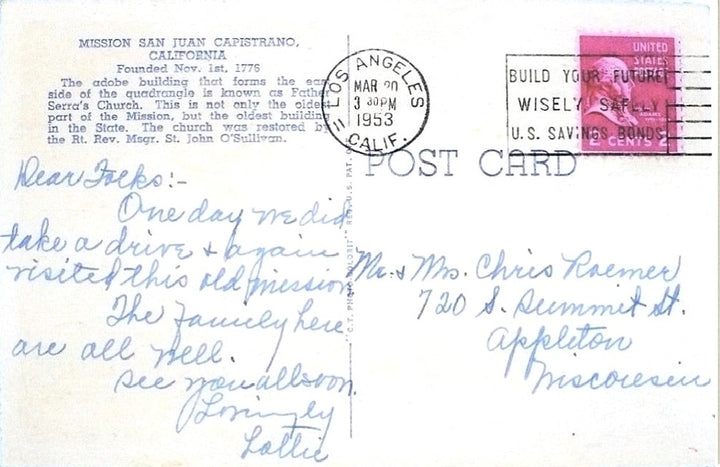 MISSION SAN JUAN CAPISTRANO,
CALIFORNIA
Founded Nov. 1st, 1776
The adobe building that forms the east
side of the quadrangle is known as Father
Serra's Church. This is not only the oldest
part of the Mission, but the oldest building
in the State. The church was restored by
the Rt. Rev. Msgr. St. John O'Sullivan.
Dear Folks:-
One day we did
take a drive & again
visited this old mission
The family here
are all well.
See you all soon.
Lovingly
Lottie
LOS ANGELES
MAR 20
3 30PM
1953
CALIF.
BUILD YOUR FUTURE
WISELY SAFELY
U.S. SAVINGS BONDS
UNITED
STATES
ADAMS
2 CENTS 2
POST CARD
Mr. & Mrs. Chris Roemer
720 S. Summit St.
Appleton
Wisconsin
REG. U.S. PAT.